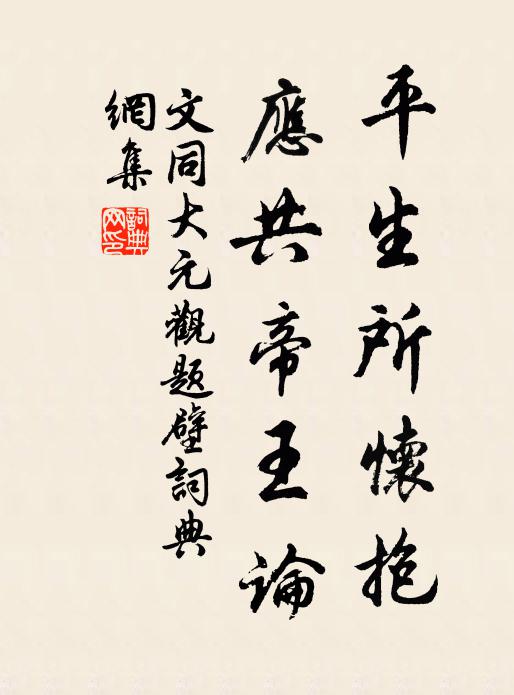 平生所懷抱
應共帝王論
文同大元觀題壁詞典
網集
詞典
网印